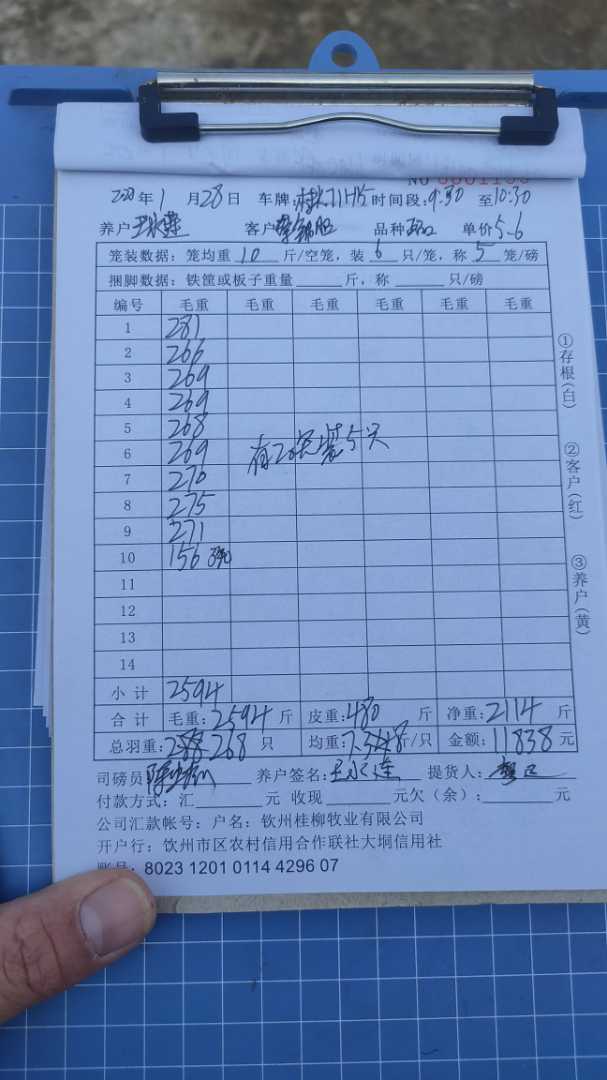 年1月28日 车牌: 时间段:9:30至10:30
养户 客户 品种 单价5-6
笼装数据:笼均重10斤/空笼,装6只/笼,称5笼/磅
捆脚数据:铁筐或板子重量 斤,称 只/磅
编号 毛重 毛重 毛重 毛重 毛重 毛重
1 281
2 266
3 269
4 269
5 268
6 269
有20笼装5只
7 270
8 275
9 271
10 156 3笼
11
12
13
14
小计 2594
合计 毛重:2594斤 皮重:480斤 净重:2114斤
总羽重:268只 均重: 斤/只 金额:11838元
司磅员 养户签名: 提货人:
付款方式:汇 元 收现 元欠(余): 元
公司汇款帐号:户名:钦州桂柳牧业有限公司
开户行:钦州市区农村信用合作联社大垌信用社
账号:8023 1201 0114 4296 07
①存根(白)
②客户(红)
③养户(黄)